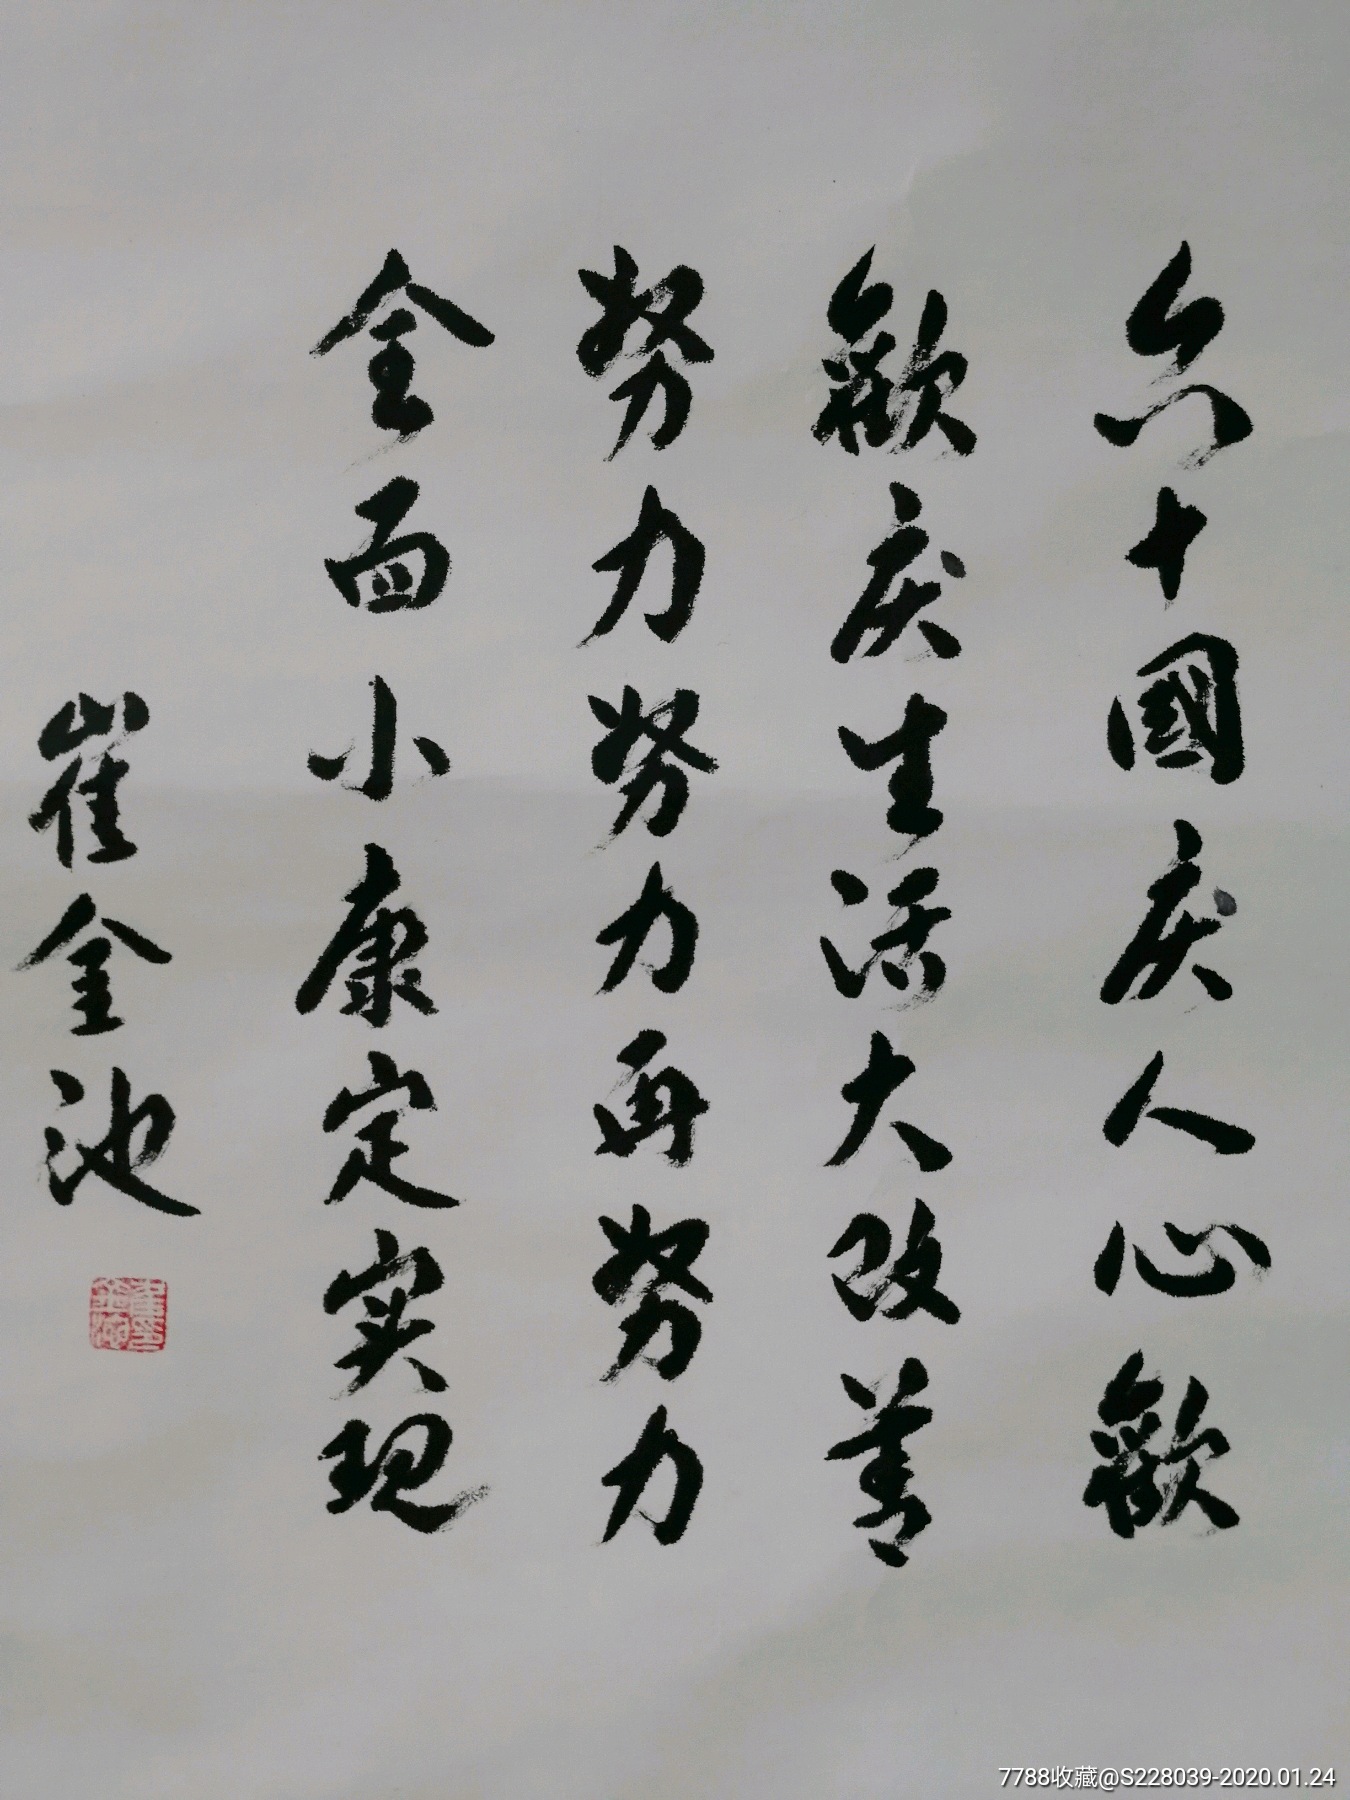 六十國庆人心歡
歡庆生活大改善
努力努力再努力
全面小康定实现
崔金池
7788收藏@S228039-2020.01.24